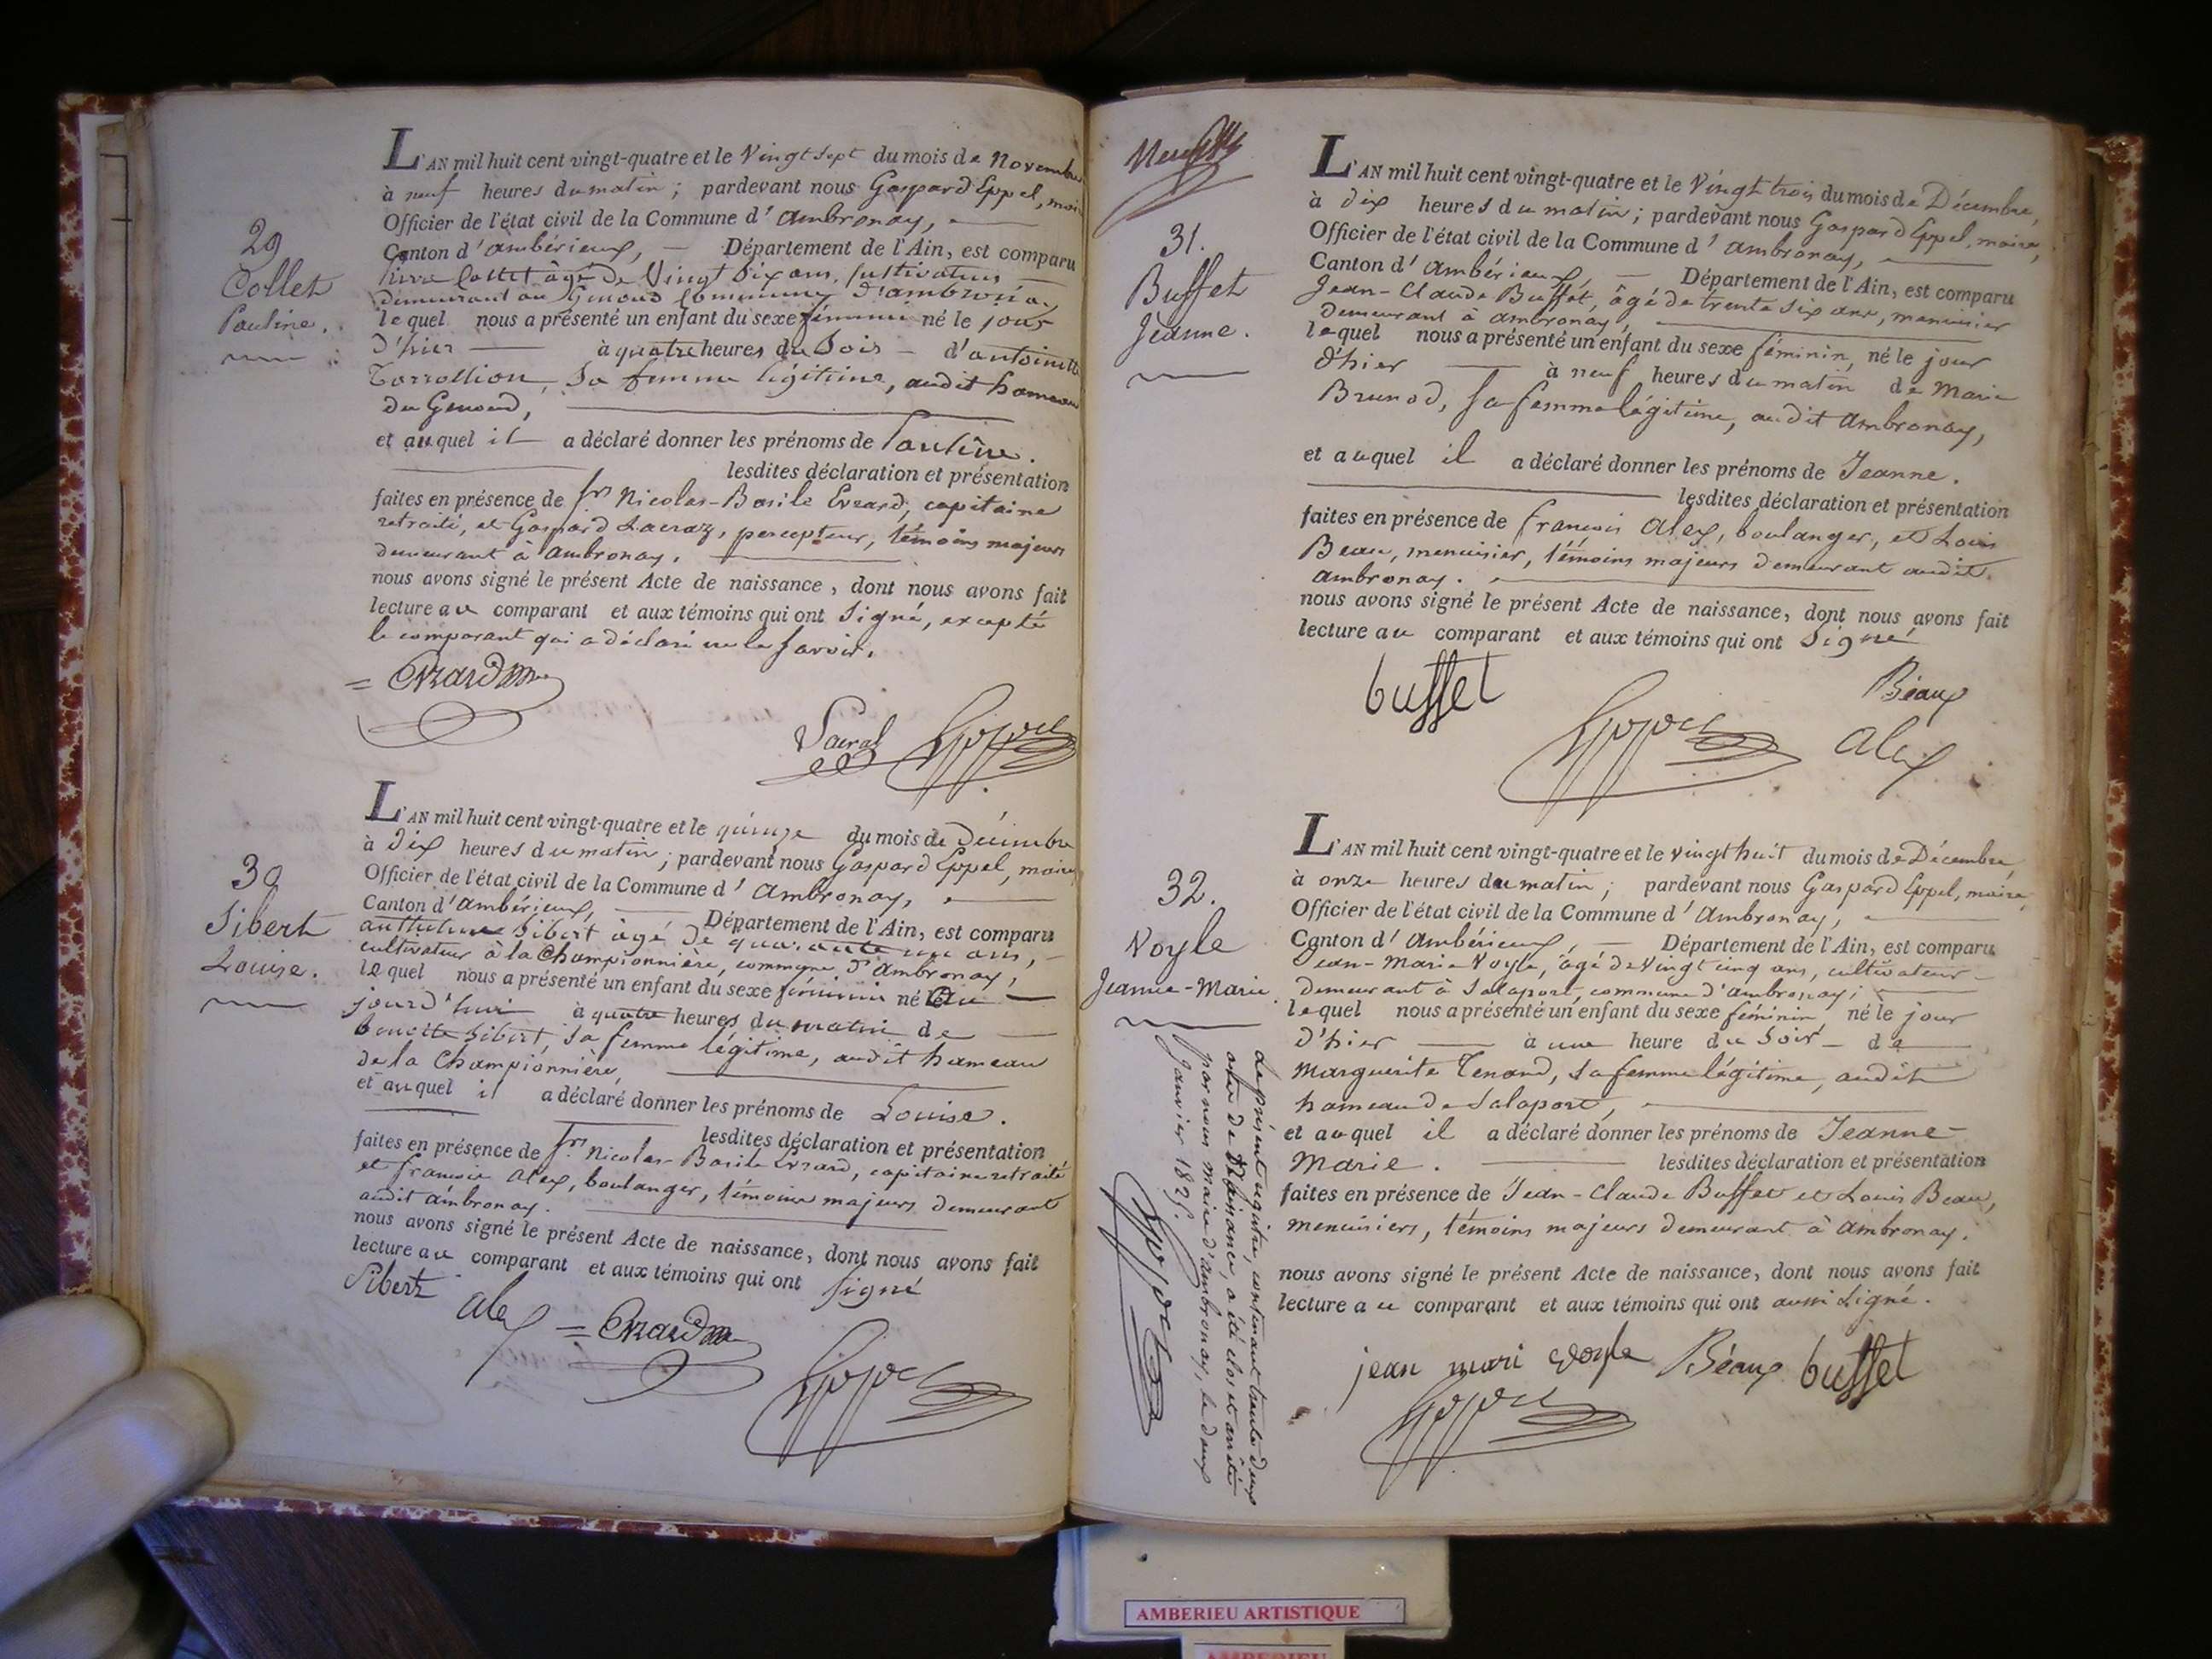 29
Collet
Pauline.
L'AN mil huit cent vingt-quatre et le Vingt sept du mois de Novembre
à neuf heures du matin ; pardevant nous Gaspard Eppel, maire
Officier de l'état civil de la Commune d' ambronay,
Canton d' ambérieux, Département de l'Ain, est comparu
Pierre Collet âgé de Vingt Six ans, Cultivateur
demeurant au Genoud Commune d'ambronay
lequel nous a présenté un enfant du sexe féminin né le jour
d'hier à quatre heures du Soir d'antoinette
sa femme légitime, audit hameau
du Genoud,
et auquel il a déclaré donner les prénoms de Pauline.
lesdites déclaration et présentation
faites en présence de Srs Nicolas-Basile Evrard, capitaine
retraité, et Gaspard Lacraz, percepteur, témoins majeurs
demeurant à ambronay.
nous avons signé le présent Acte de naissance, dont nous avons fait
lecture au comparant et aux témoins qui ont signé, excepté
le comparant qui a déclaré ne le savoir.
Evrard
30
Sibert
Louise.
L'AN mil huit cent vingt-quatre et le quinze du mois de Décembre
à dix heures du matin ; pardevant nous Gaspard Eppel, maire
Officier de l'état civil de la Commune d' ambronay,
Canton d' ambérieux, Département de l'Ain, est comparu
Sibert âgé de quarante un ans,
cultivateur à la Championnière, commune d'ambronay,
lequel nous a présenté un enfant du sexe féminin né
jourd'hui à quatre heures du matin de
Sibert, sa femme légitime, audit hameau
de la Championnière,
et auquel il a déclaré donner les prénoms de Louise.
lesdites déclaration et présentation
faites en présence de Sr. Nicolas-Basile Evrard, capitaine retraité
et françois alex, boulanger, témoins majeurs demeurant
audit ambronay.
nous avons signé le présent Acte de naissance, dont nous avons fait
lecture au comparant et aux témoins qui ont signé
Sibert alex Evrard
31.
Buffet
Jeanne.
L'AN mil huit cent vingt-quatre et le Vingt trois du mois de Décembre,
à dix heures du matin ; pardevant nous Gaspard Eppel, maire,
Officier de l'état civil de la Commune d' ambronay,
Canton d' ambérieux, Département de l'Ain, est comparu
Jean-Claude Buffet, âgé de trente six ans, menuisier
demeurant à ambronay,
lequel nous a présenté un enfant du sexe féminin, né le jour
d'hier à neuf heures du matin de Marie
Brunod, sa femme légitime, audit ambronay,
et auquel il a déclaré donner les prénoms de Jeanne.
lesdites déclaration et présentation
faites en présence de françois alex, boulanger, et Louis
Beau, menuisier, témoins majeurs demeurant audit
ambronay.
nous avons signé le présent Acte de naissance, dont nous avons fait
lecture au comparant et aux témoins qui ont signé
buffet Béaux
alex
32.
Voyle
Jeanne-Marie.
L'AN mil huit cent vingt-quatre et le vingt huit du mois de Décembre
à onze heures du matin ; pardevant nous Gaspard Eppel, maire,
Officier de l'état civil de la Commune d' ambronay,
Canton d' ambérieux, Département de l'Ain, est comparu
Jean-Marie Voyle, âgé de vingt cinq ans, cultivateur
demeurant à Salaport, commune d'ambronay ;
lequel nous a présenté un enfant du sexe féminin né le jour
d'hier à une heure du soir de
Marguerite Tenand, sa femme légitime, audit
hameau de Salaport,
et auquel il a déclaré donner les prénoms de Jeanne-
Marie. lesdites déclaration et présentation
faites en présence de Jean-Claude Buffet et Louis Beau,
menuisiers, témoins majeurs demeurant à ambronay.
nous avons signé le présent Acte de naissance, dont nous avons fait
lecture au comparant et aux témoins qui ont aussi signé.
jean mari voyle Béaux buffet
Le présent registre, contenant trente deux
actes de Naissance, a été clos et arrêté
par nous Maire d'ambronay, le deux
Janvier 1825.
AMBERIEU ARTISTIQUE
AMBERIEU